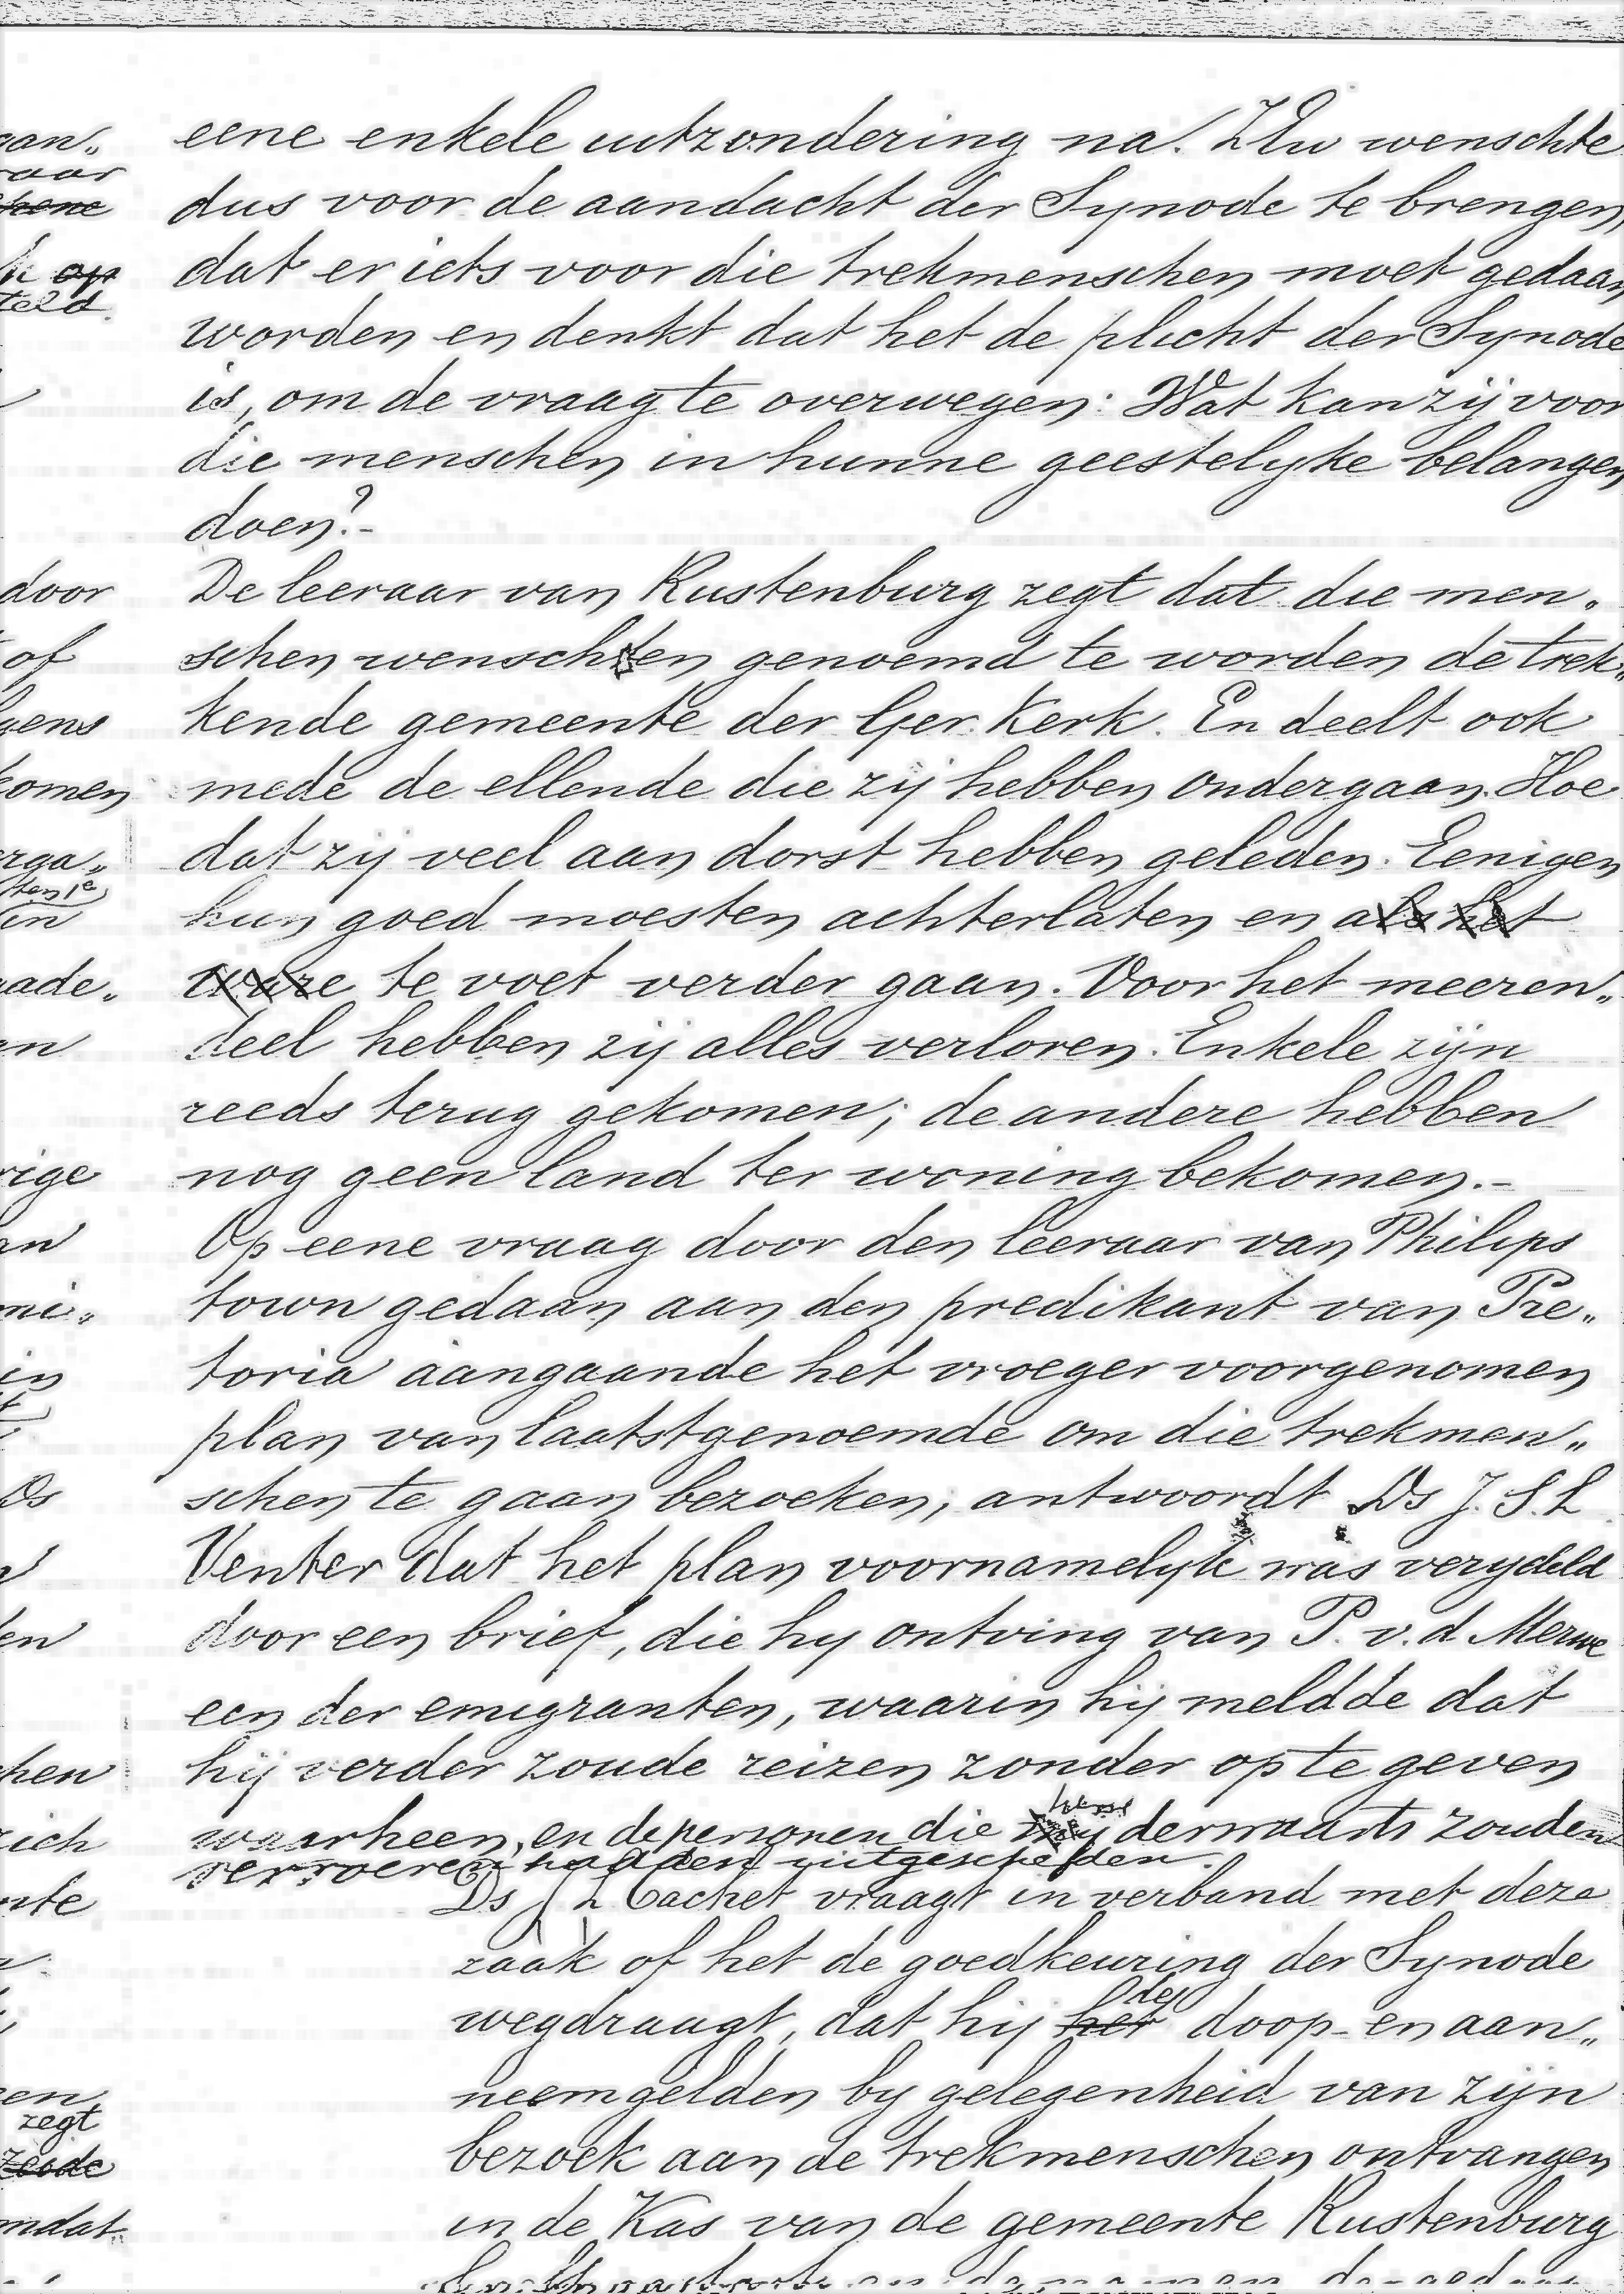 eene enkele uitzondering na. ZEw wenschte
dus voor de aandacht der Synode te brengen,
dat er iets voor die trekmenschen moet gedaan
worden en denkt dat het de plicht der Synode
is, om de vraag te overwegen: Wat kan zij voor
die menschen in hunne geestelyke belangen
doen?-
De leeraar van Rustenburg zegt dat die men„
schen wenschten genoemd te worden de trek„
kende gemeente der Ger. Kerk. En deelt ook
mede de ellende die zij hebben ondergaan. Hoe
dat zij veel aan dorst hebben geleden. Eenigen
hun goed moesten achterlaten en als het
ware te voet verder gaan. Voor het meeren„
deel hebben zij alles verloren. Enkele zijn
reeds terug gekomen; de andere hebben
nog geen land ter woning bekomen.-
Op eene vraag door den leeraar van Philips
town gedaan aan den predikant van Pre„
toria aangaande het vroeger voorgenomen
plan van laatstgenoemde om die trekmen„
schen te gaan bezoeken, antwoordt Ds J. S. L
Venter dat het plan voornamelyk was verydeld
door een brief, die hy ontving van P. v. d Merwe
een der emigranten, waarin hij meldde dat
hij verder zoude reizen zonder op te geven
waarheen, en de personen die derwaarts zouden
vervoeren hadden uitgescheiden.
Ds J L Cachet vraagt in verband met deze
zaak of het de goedkeuring der Synode
wegdraagt, dat hij het de doop- en aan„
neemgelden by gelegenheid van zijn
bezoek aan de trekmenschen ontvangen
in de Kas van de gemeente Rustenburg
door
of
gens
komen
in
an
rige
an
in
Ds
en
hen
zich
nte
en
zegt
zeide
omdat